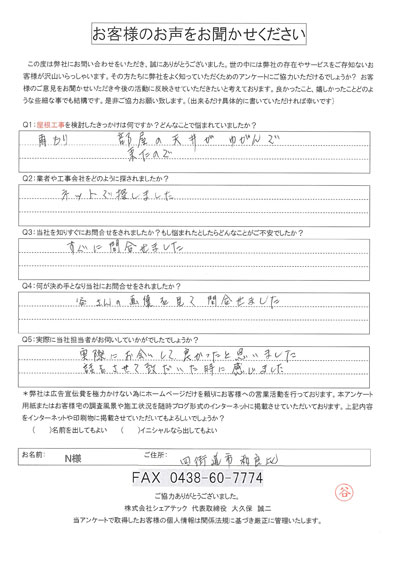 お客様のお声をお聞かせください
この度は弊社にお問い合わせをいただき、誠にありがとうございました。世の中には弊社の存在やサービスをご存知ないお
客様が沢山いらっしゃいます。その方たちに弊社をよく知っていただくためのアンケートにご協力いただけるでしょうか? お客
様のご意見をお聞かせいただき今後の活動に反映させていただきたいと考えております。良かったこと、嬉しかったことどのよ
うな些細な事でも結構です。是非ご協力お願い致します。(出来るだけ具体的に書いていただければ幸いです)
Q1:屋根工事を検討したきっかけは何ですか?どんなことで悩まれていましたか?
雨もり 部屋の天井がゆがんで
来たので
Q2:業者や工事会社をどのように探されましたか?
ネットで探しました
Q3:当社を知りすぐにお問合せをされましたか?もし悩まれたとしたらどんなことがご不安でしたか?
すぐに問合せました
Q4:何が決め手となり当社にお問合せをされましたか?
さんの画像を見て問合せました
Q5:実際に当社担当者がお伺いしていかがでしたでしょうか?
実際にお会いして良かったと思いました
話をさせて頂いた時に感じました
*弊社は広告宣伝費を極力かけない為にホームページだけを頼りにお客様への営業活動を行っております。本アンケート
用紙またはお客様宅の調査風景や施工状況を随時ブログ形式のインターネットに掲載させていただいております。上記内容
をインターネットや印刷物に掲載させていただいてもよろしいでしょうか?
( )名前を出してもよい ( )イニシャルなら出してもよい
お名前: N様 ご住所: 四街道市和良比
FAX 0438-60-7774
谷
ご協力ありがとうございました。
株式会社シェアテック 代表取締役 大久保 誠二
当アンケートで取得したお客様の個人情報は関係法規に基づき厳正に管理いたします。